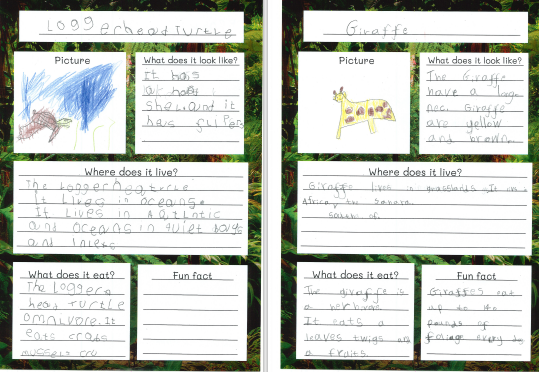 Loggerhead Turtle
Picture
What does it look like?
It has
a hard
shell. and it
has fliper
Where does it live?
The Loggerheaturtle
It Lives in oceans.
It Lives in Aatlntic
and oceans in quiet bays
and inlets
What does it eat?
The Logger
head Turtle
omnivore. It
eats crabs
mussels
Fun fact
Giraffe
Picture
What does it look like?
The Giraffe
have a large
nec. Giraffe
are yellow
and brown.
Where does it live?
Giraffe lives in grasslands. It in
Africa, the Sahara.
south of
What does it eat?
The giraffe is
a herbivore
It eats a
leaves twigs an
a fruits.
Fun fact
Giraffes eat
up to
pounds of
foliage every